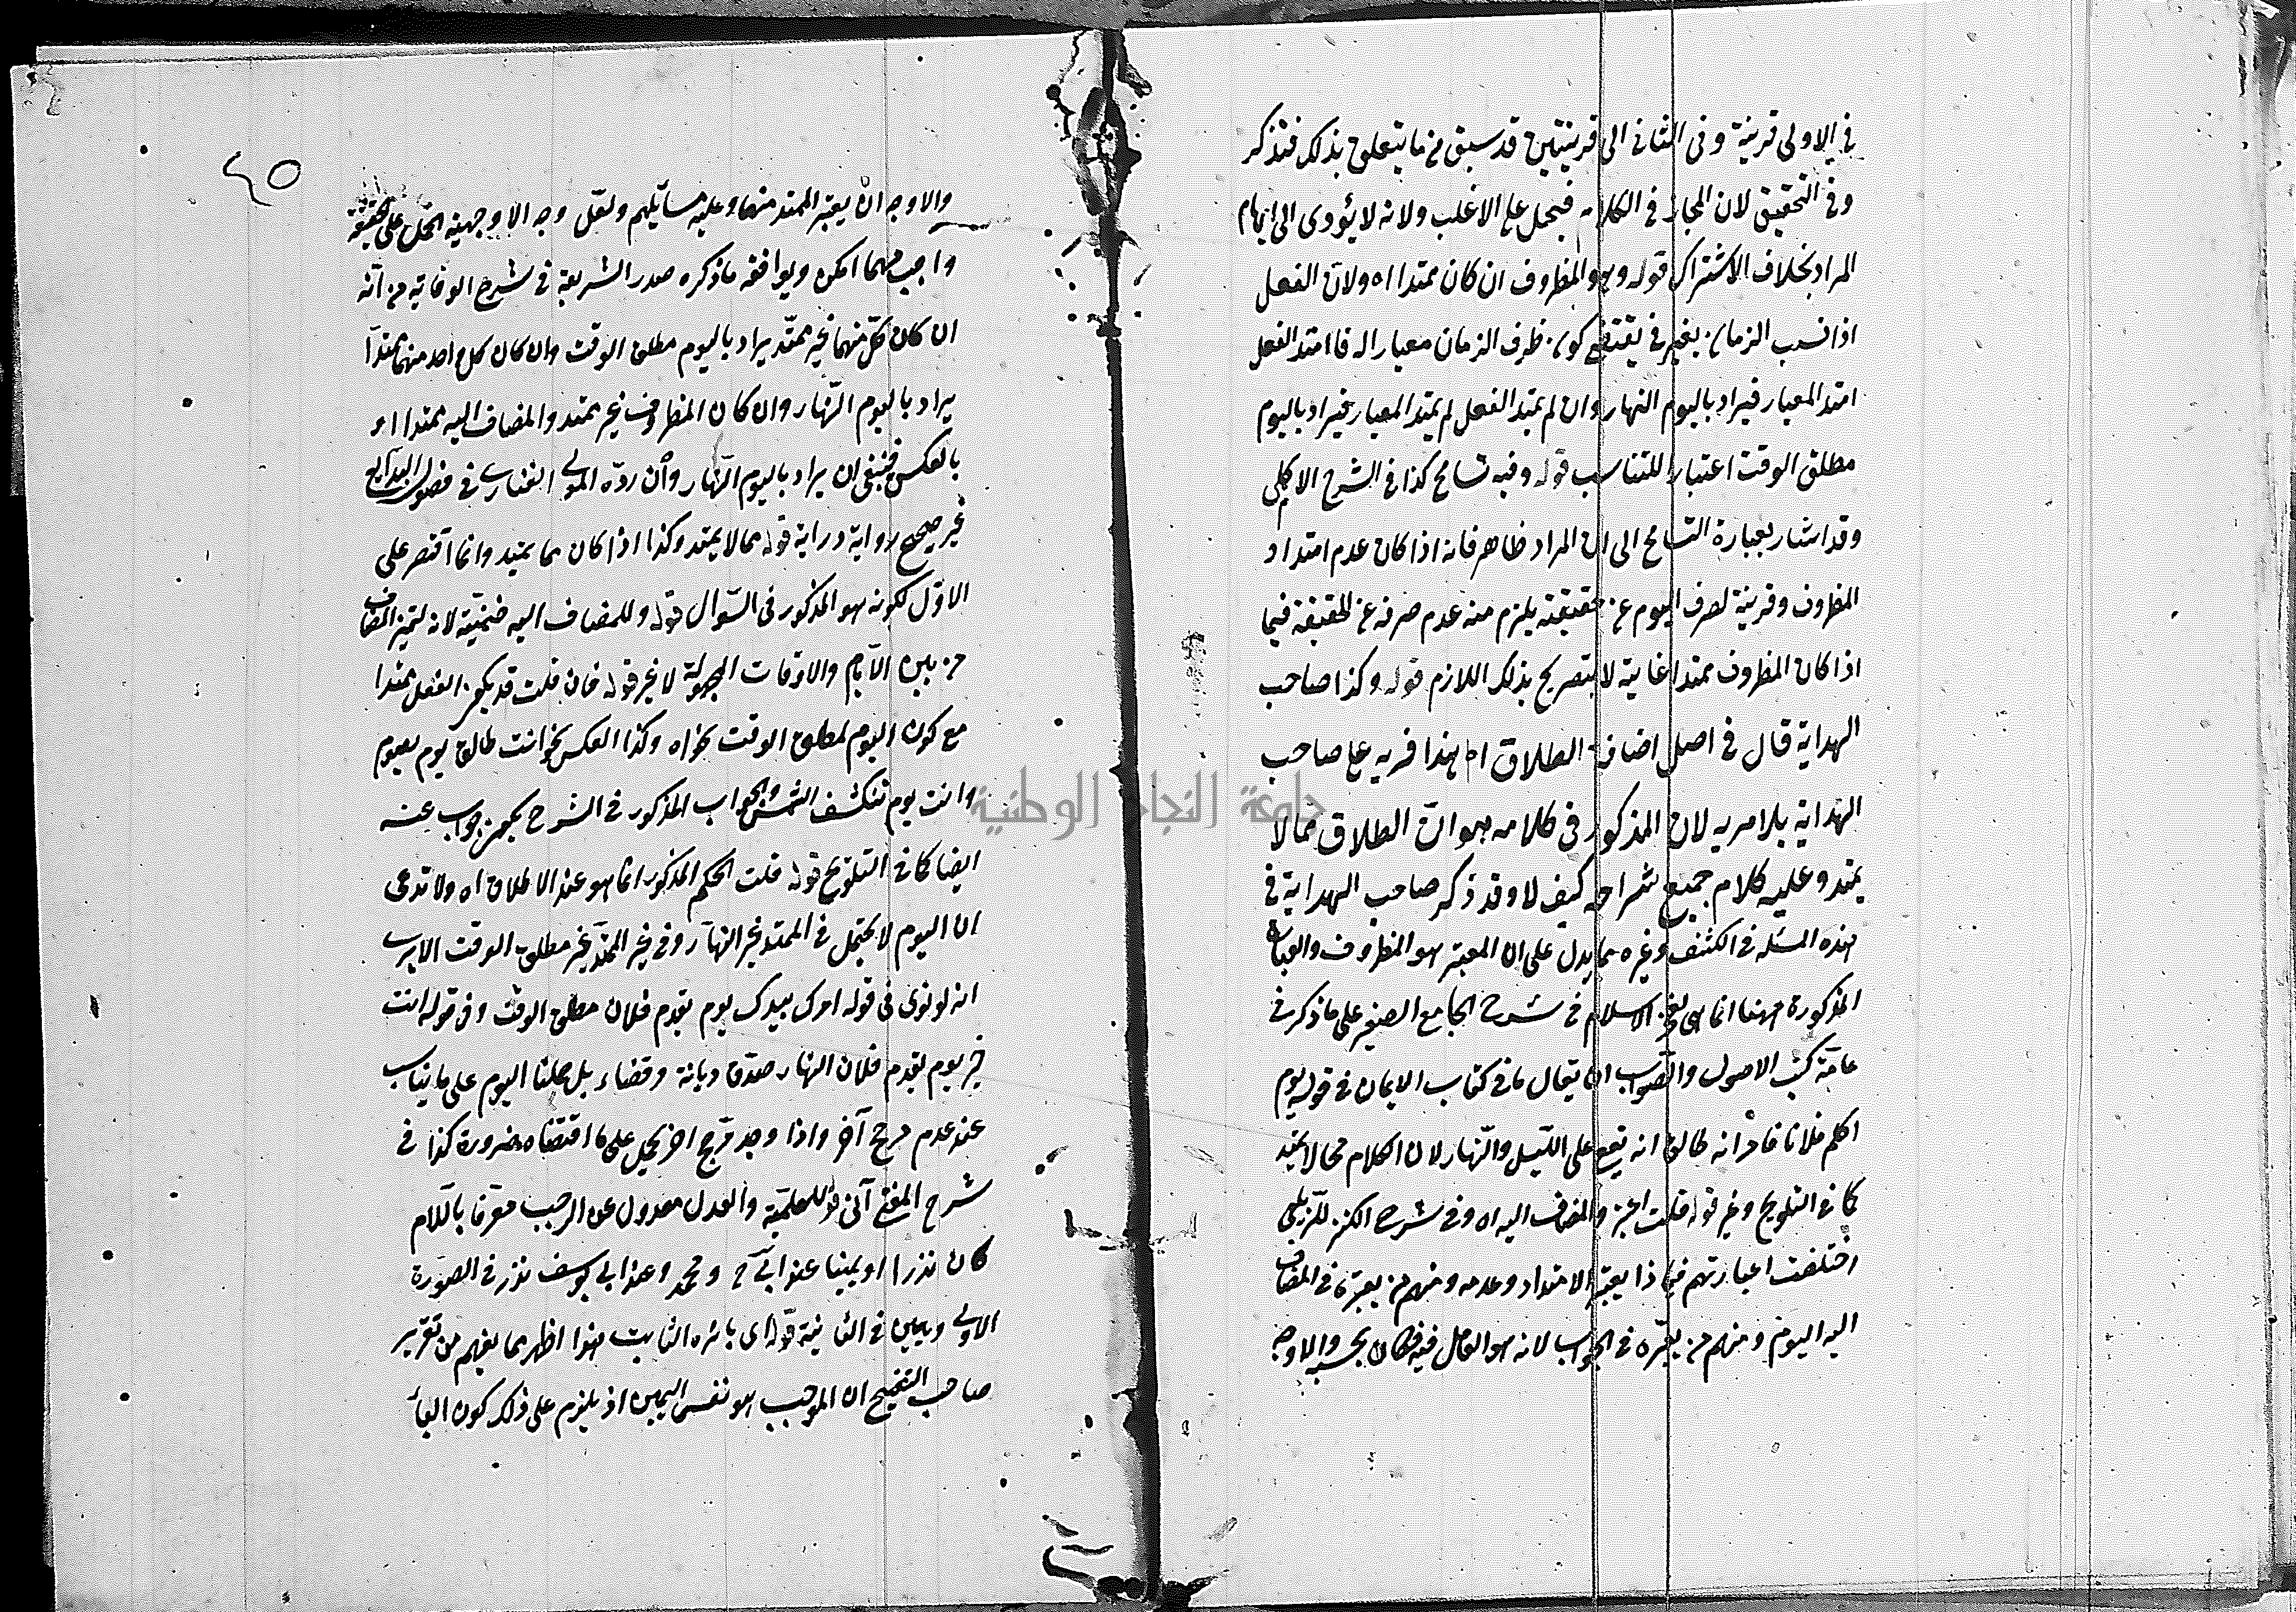 في الاولى قرينة وفي الثاني الى قرينتين قد سبق منا ما يتعلق بذلك فتذكر
وفي التحقيق لان المجاز في الكلام فيحمل على الاغلب ولانه لا يؤدى الى ابهام
المراد بخلاف الاشتراك قوله وهو المظروف ان كان ممتدا اه ولان الفعل
اذا نسب الى الزمان بغير في يقتضى كون ظرف الزمان معيارا له فاا امتد الفعل
امتد المعيار فيراد باليوم النهار وان لم يمتد الفعل لم يمتد المعيار فيراد باليوم
مطلق الوقت اعتبارا للتناسب قوله وفيه تسامح كذا في الشرح الاكملى
وقد اشار بعبارة التسامح الى ان المراد ظاهر فانه اذا كان عدم امتداد
المظروف وقرينة لصرف اليوم عن حقيقته يلزم منه عدم صرفه عن الحقيقة فيما
اذا كان المظروف ممتدا غاية لا بتصريح بذلك اللازم قوله وكذا صاحب
الهداية قال في اصل اضافة الطلاق اه هذا فريه على صاحب
الهداية بلا مريه لان المذكور في كلامه هو ان الطلاق مما لا
يمتد وعليه كلام جميع شراحه كيف لا وقد ذكر صاحب الهداية في
هذه المسئله في الكشف وغيره مما يدل على ان المعتبر هو المظروف والعبارة
المذكورة ههنا انما هي لفخر الاسلام في شرح الجامع الصغير على ما ذكر في
عامة كتب الاصول والصواب ان يقال ما في كتاب الايمان في قوله يوم
اكلم فلانا فامرأته طالق انه يقع على الليل والنهار لان الكلام مما لا يمتد
كما في التلويح وغيره قوله قلت اعتبر والمضاف اليه اه وفي شرح الكنز للزيلعى
اختلفت عبارتهم فيما ذا يعتبر الامتداد وعدمه ومنهم من يعتبره في المضاف
اليه اليوم ومنهم من يعتبره في الجواب لانه هو العامل فيه فكان بحسبه والاوجه
٤٥
والاوجه ان يعتبر الممتد منهما وعليه مسائلهم ولعل وجه الاوجهية الحمل على الحقيقة
واجب مهما امكن ويوافقه ما ذكره صدر الشريعة في شرح الوقاية من انه
ان كان كل منهما غير ممتد يراد باليوم مطلق الوقت وان كان كل واحد منهما ممتدا
يراد باليوم النهار وان كان المظروف غير ممتد والمضاف اليه ممتدا او
بالعكس فينبغى ان يراد باليوم النهار وأن ردّه المولى الفنارى في فصول البدايع
غير صحيح رواية ودراية قوله مما لا يمتد وكذا اذا كان مما يمتد وانما اقتصر على
الاوّل لكونه هو المذكور في السؤال قوله وللمضاف اليه ضمنيّة لانه لتميز المضاف
من بين الايام والاوقات المجهولة لا غير قوله فان قلت قد يكون الفعل ممتدا
مع كون اليوم لمطلق الوقت نحو اه وكذا العكس نحو انت طالق يوم يصوم
وانت يوم تنكشف الشمس والجواب المذكور في الشرح يكون جواب عنه
ايضا كما في التلويح قوله قلت الحكم المذكور انما هو عند الاطلاق اه ولا ندعى
ان اليوم لا يحتمل في الممتد غير النهار وفي غير الممتد غير مطلق الوقت الا يرى
انه لو نوى في قوله امرك بيدك يوم يقدم فلان مطلق الوقت وفي قوله انت
حر يوم يقدم فلان النهار صدق ديانة وقضاء بل حملنا اليوم على ما يناسب
عند عدم مرجح آخر واذا وجد مرجح اخر يحمل على ما اقتضاه ضرورة كذا في
شرح المغنى آنى قوله للعلمية والعدل معدول عن الرجب معرفا باللام
كان نذرا او يمينا عند ابى ح ومحمد وعند ابى يوسف نذر في الصورة
الاولى ويمين في الثانية قوله اى باثره الثابت هذا اظهر مما يفهم من تقرير
صاحب التنقيح ان الموجب هو نفس اليمين اذ يلزم على ذلك كون
جامعة النجاح الوطنية